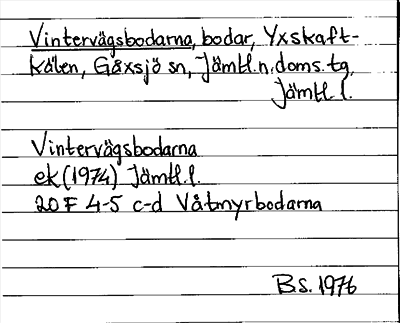 Vintervägsbodarna, bodar, Yxskaft-
kälen, Gåxsjö sn, Jämtl.n. doms. tg,
Jämtl. l.
Vintervägsbodarna
ek (1974) Jämtl. l.
20 F 4-5 c-d Våtmyrbodarna
B.S. 1976